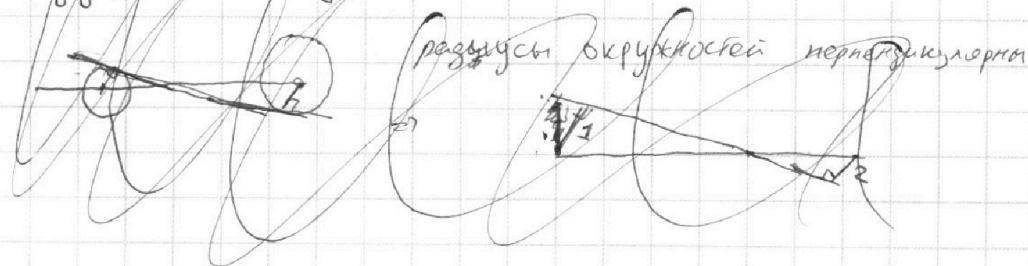 радиусы окружностей перпендикулярны
1
2